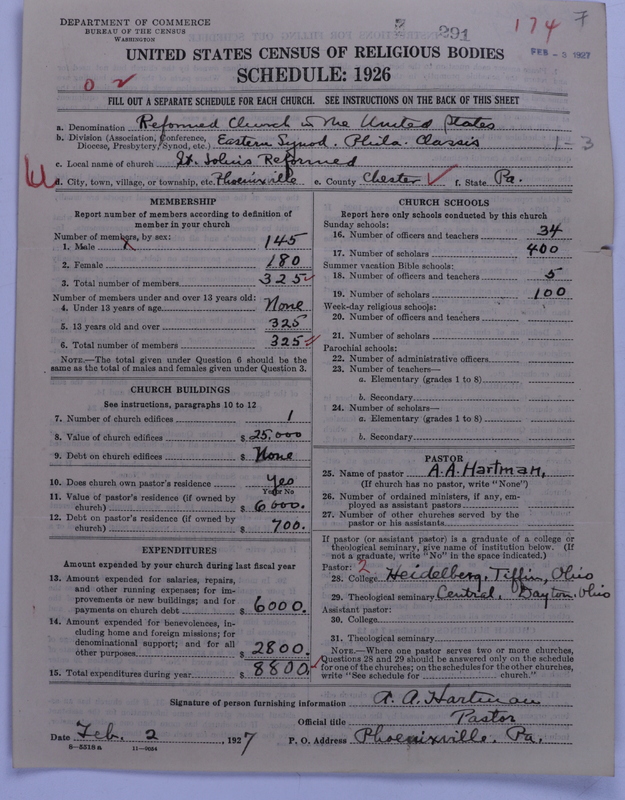 DEPARTMENT OF COMMERCE
BUREAU OF THE CENSUS
WASHINGTON
291
174
7
FEB - 5 1927
UNITED STATES CENSUS OF RELIGIOUS BODIES
SCHEDULE: 1926
FILL OUT A SEPARATE SCHEDULE FOR EACH CHURCH. SEE INSTRUCTIONS ON THE BACK OF THIS SHEET
a. Denomination Reformed Church in the United States
b. Division (Association, Conference, Diocese, Presbytery, Synod, etc.) Eastern Synod. Phila. Classis
1-3
c. Local name of church St. John's Reformed
d. City, town, village, or township, etc. Phoenixville e. County Chester f. State Pa.
MEMBERSHIP
Report number of members according to definition of
member in your church
Number of members, by sex:
1. Male 145
2. Female 180
3. Total number of members 325
Number of members under and over 13 years old:
4. Under 13 years of age None
5. 13 years old and over 325
6. Total number of members 325
NOTE.—The total given under Question 6 should be the
same as the total of males and females given under Question 3.
CHURCH BUILDINGS
See instructions, paragraphs 10 to 12
7. Number of church edifices 1
8. Value of church edifices $ 25,000
9. Debt on church edifices $ None
10. Does church own pastor's residence yes
Yes or No
11. Value of pastor's residence (if owned by
church) $ 6000.
12. Debt on pastor's residence (if owned by
church) $ 700.
EXPENDITURES
Amount expended by your church during last fiscal year
13. Amount expended for salaries, repairs,
and other running expenses; for im-
provements or new buildings; and for
payments on church debt $ 6000.
14. Amount expended for benevolences, in-
cluding home and foreign missions; for
denominational support; and for all
other purposes $ 2800.
15. Total expenditures during year $ 8800.
CHURCH SCHOOLS
Report here only schools conducted by this church
Sunday schools:
16. Number of officers and teachers 34
17. Number of scholars 400
Summer vacation Bible schools:
18. Number of officers and teachers 5
19. Number of scholars 100
Week-day religious schools:
20. Number of officers and teachers
21. Number of scholars
Parochial schools:
22. Number of administrative officers
23. Number of teachers—
a. Elementary (grades 1 to 8)
b. Secondary
24. Number of scholars—
a. Elementary (grades 1 to 8)
b. Secondary
PASTOR
25. Name of pastor A. A. Hartman,
(If church has no pastor, write "None")
26. Number of ordained ministers, if any, em-
ployed as assistant pastors
27. Number of other churches served by the
pastor or his assistants
If pastor (or assistant pastor) is a graduate of a college or
theological seminary, give name of institution below. (If
not a graduate, write "No" in the space indicated.)
Pastor: 2
28. College Heidelberg, Tiffin, Ohio
29. Theological seminary Central, Dayton, Ohio
Assistant pastor:
30. College
31. Theological seminary
NOTE.—Where one pastor serves two or more churches,
Questions 28 and 29 should be answered only on the schedule
for one of the churches; on the schedules for the other churches,
write "See schedule for church."
Signature of person furnishing information A. A. Hartman
Official title Pastor
Date Feb. 2, 1927 P. O. Address Phoenixville, Pa.
8—5518a 11—9024